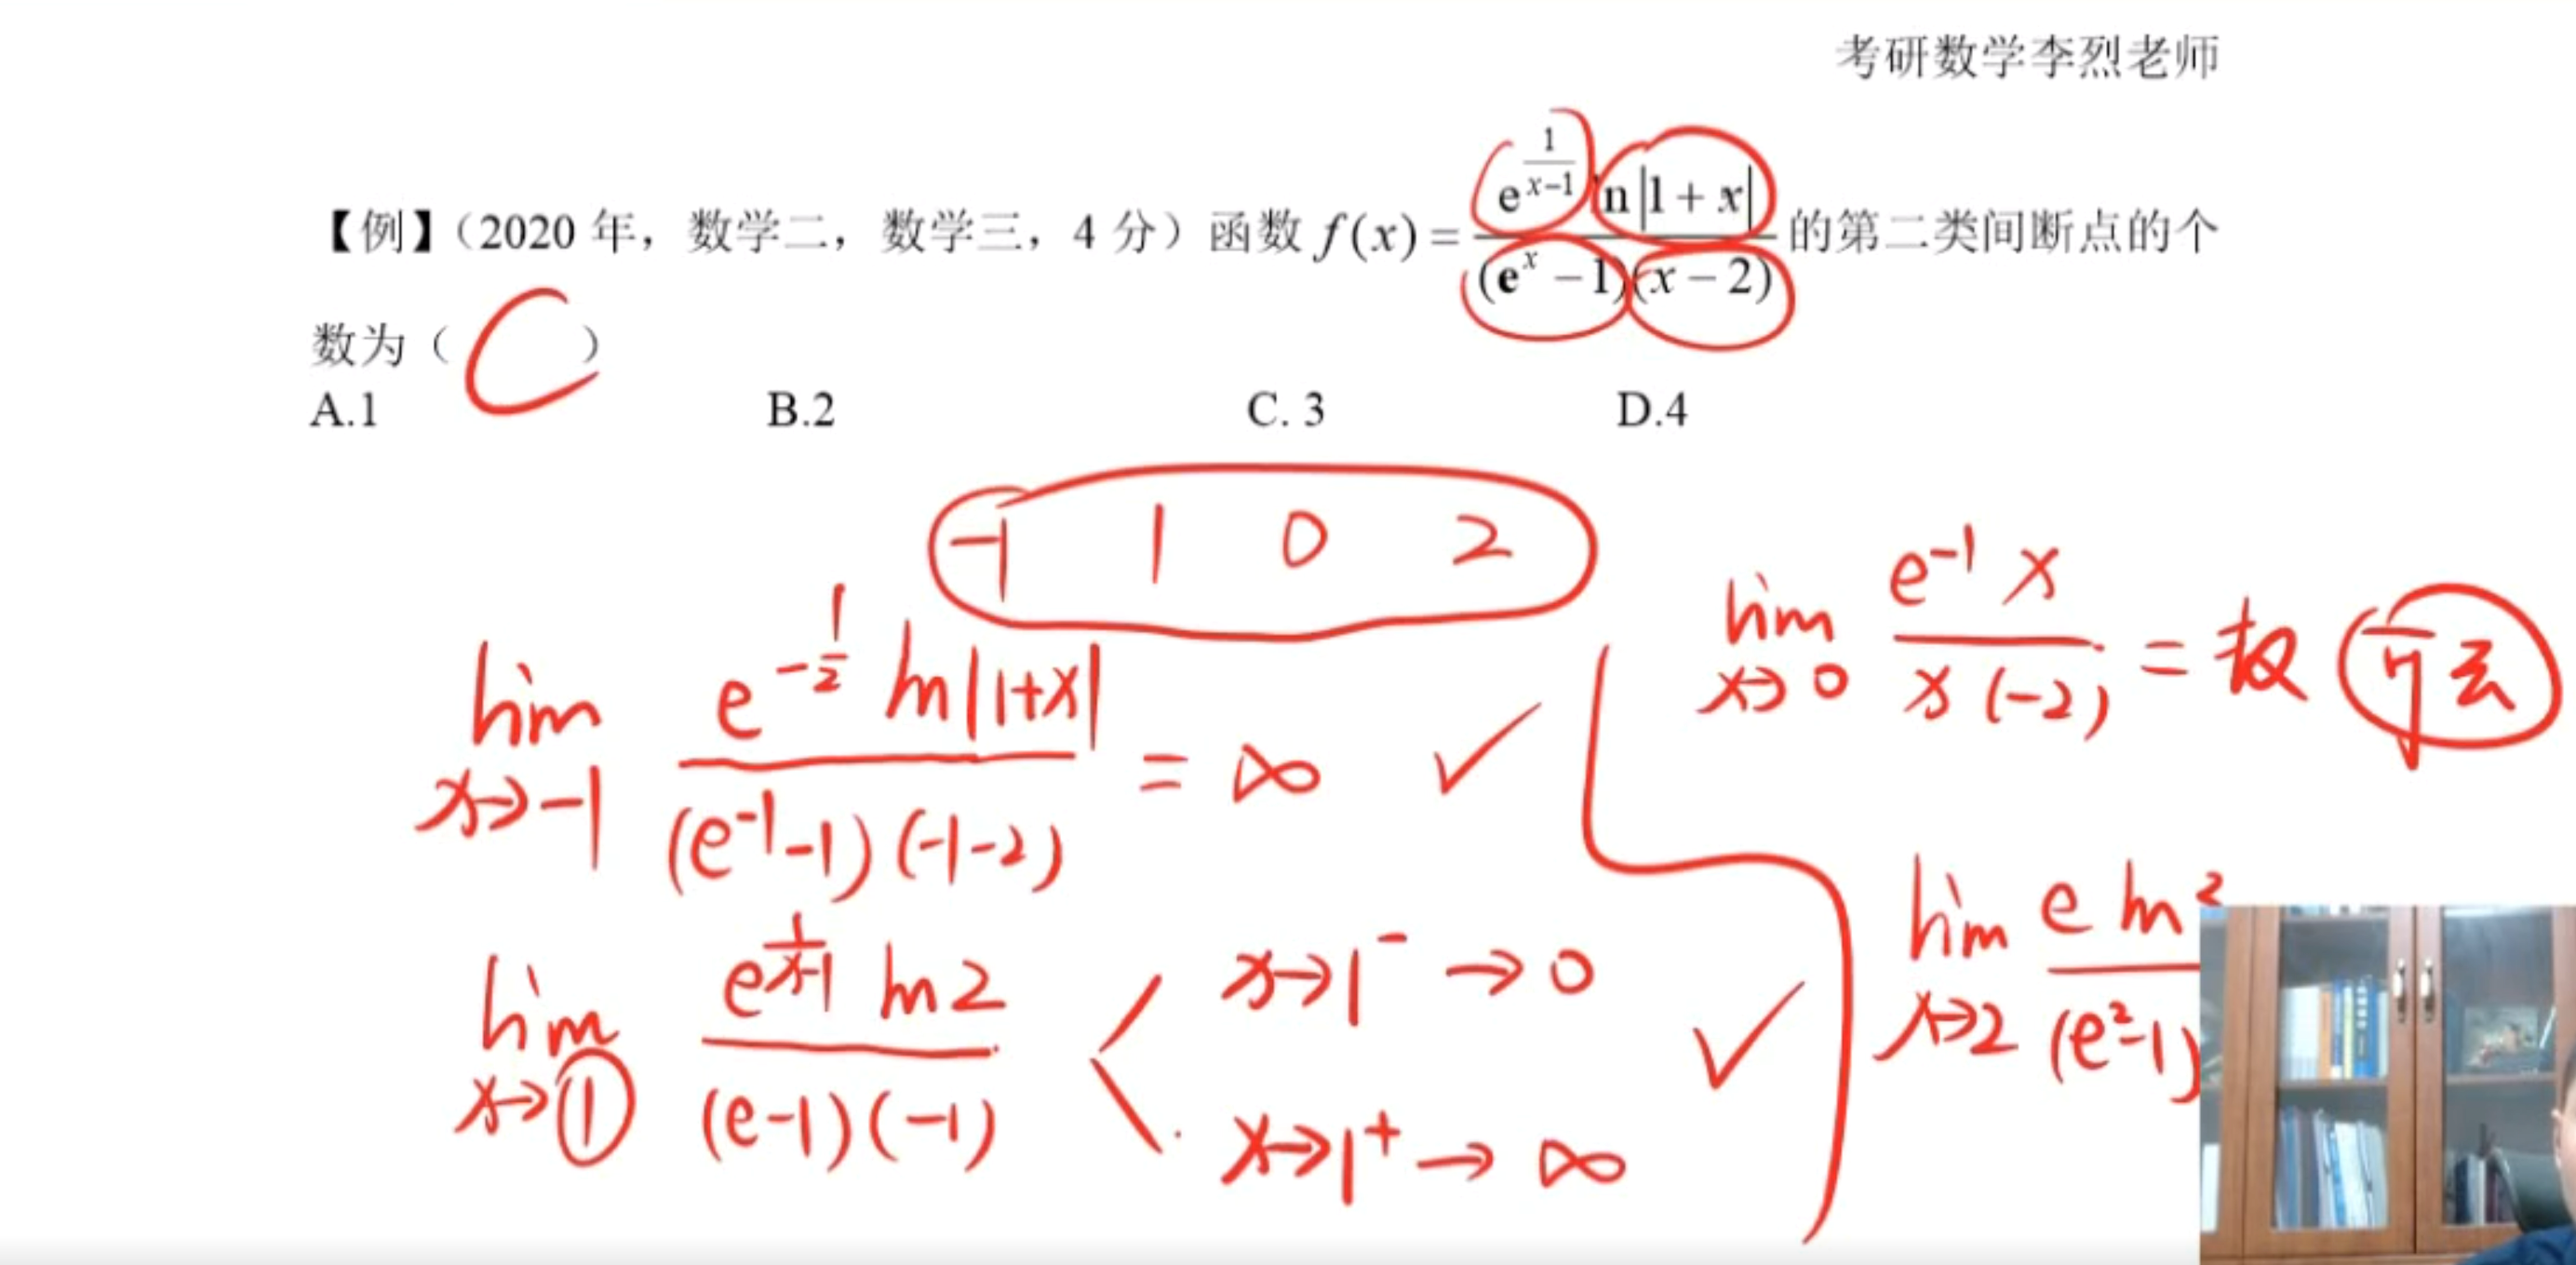 考研数学李烈老师
【例】（2020 年，数学二，数学三，4 分）函数 f(x) = \frac{e^{\frac{1}{x-1}} ln|1+x|}{(e^x − 1)(x − 2)} 的第二类间断点的个
数为（ C ）
A.1 B.2 C. 3 D.4
-1 1 0 2
lim_{x→-1} \frac{e^{-\frac{1}{2}} ln|1+x|}{(e^{-1}-1)(-1-2)} = ∞ ✓
lim_{x→1} \frac{e^{\frac{1}{x-1}} ln2}{(e-1)(-1)} < x→1^- → 0
x→1^+ → ∞ ✓
lim_{x→0} \frac{e^{-1} x}{x(-2)} = 极 可去
lim_{x→2} \frac{e ln}{(e^2-1)